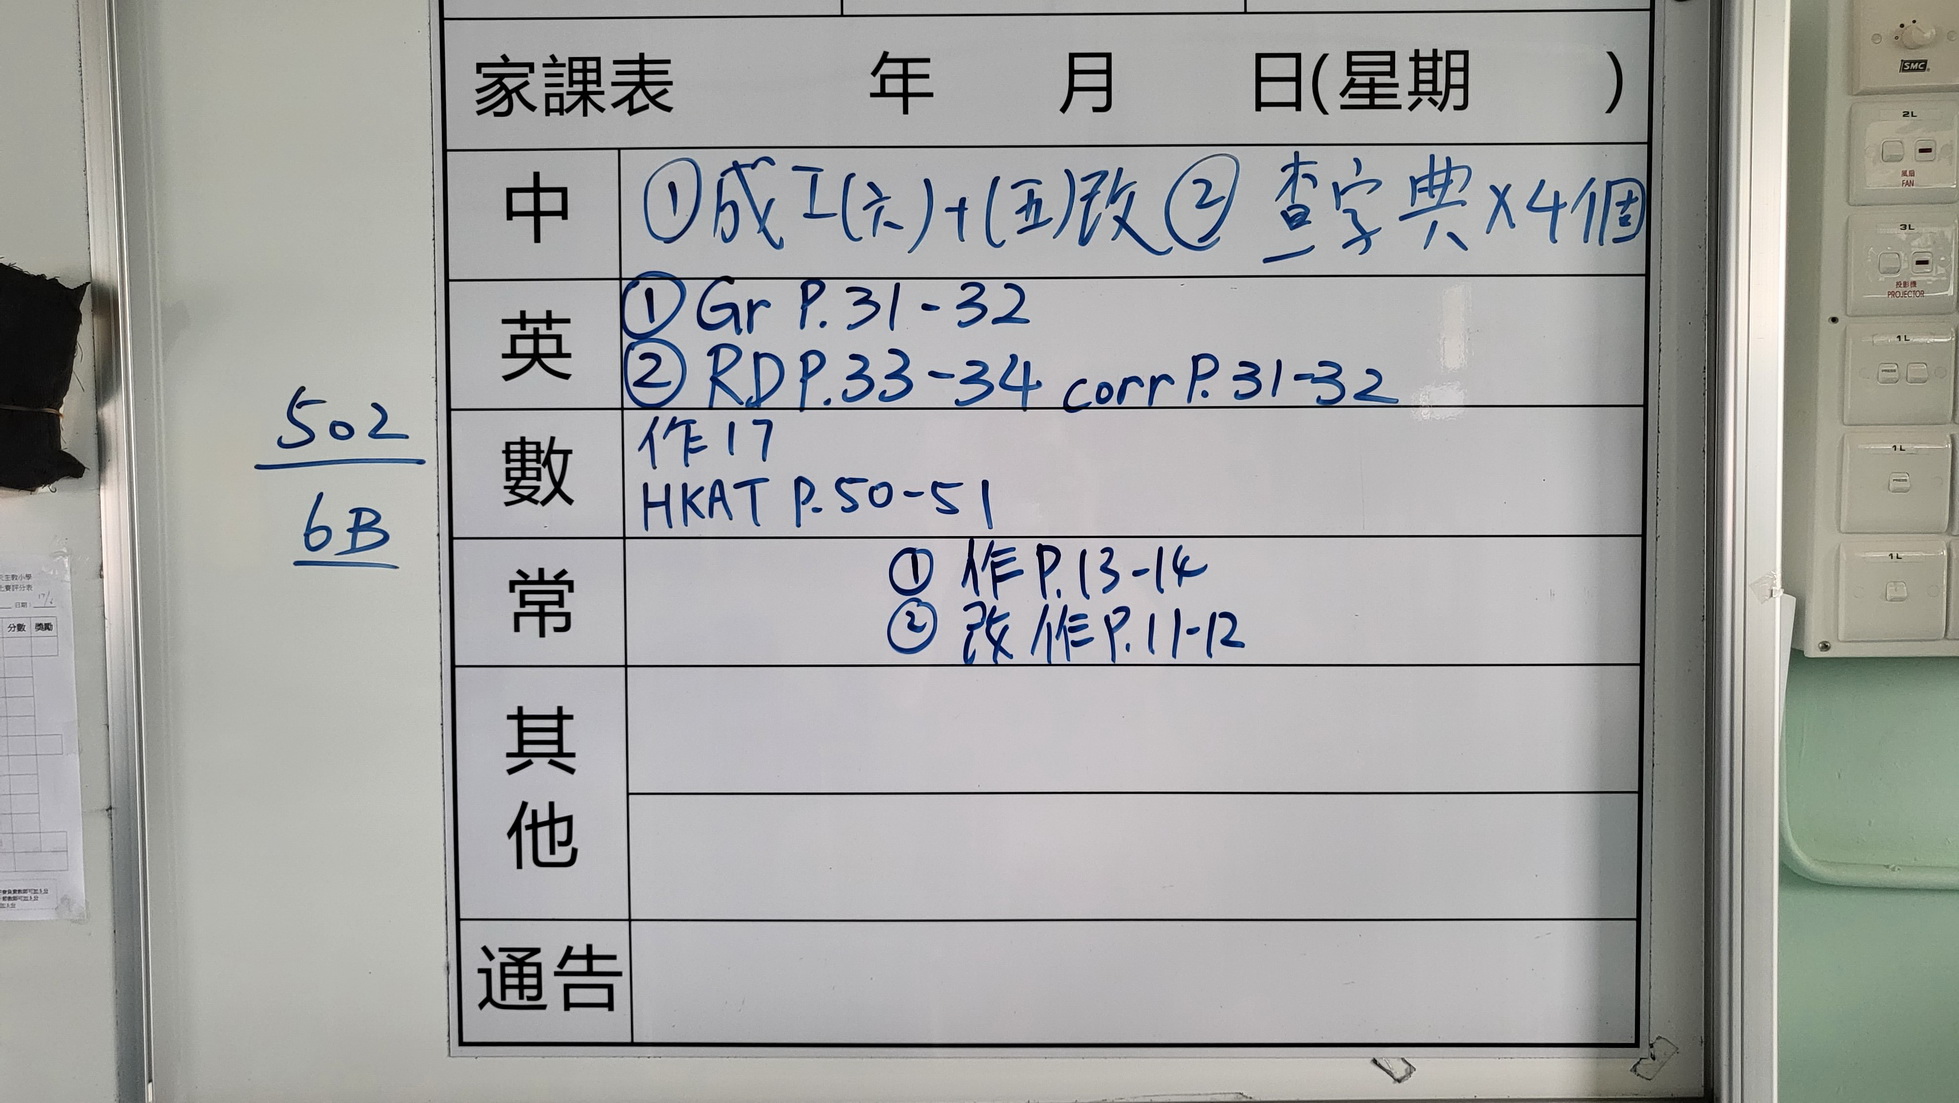 家課表 年 月 日(星期 )
中 ①成工(六)+(五)改 ② 查字典×4個
英 ① Gr P.31-32
② RD P.33-34 corr P.31-32
數 作17
HKAT P.50-51
常 ① 作P.13-14
② 改作P.11-12
其他
通告
502
6B
SMC
2L
風扇
FAN
3L
投影機
PROJECTOR
1L
1L
1L
日期:
分數 獎勵